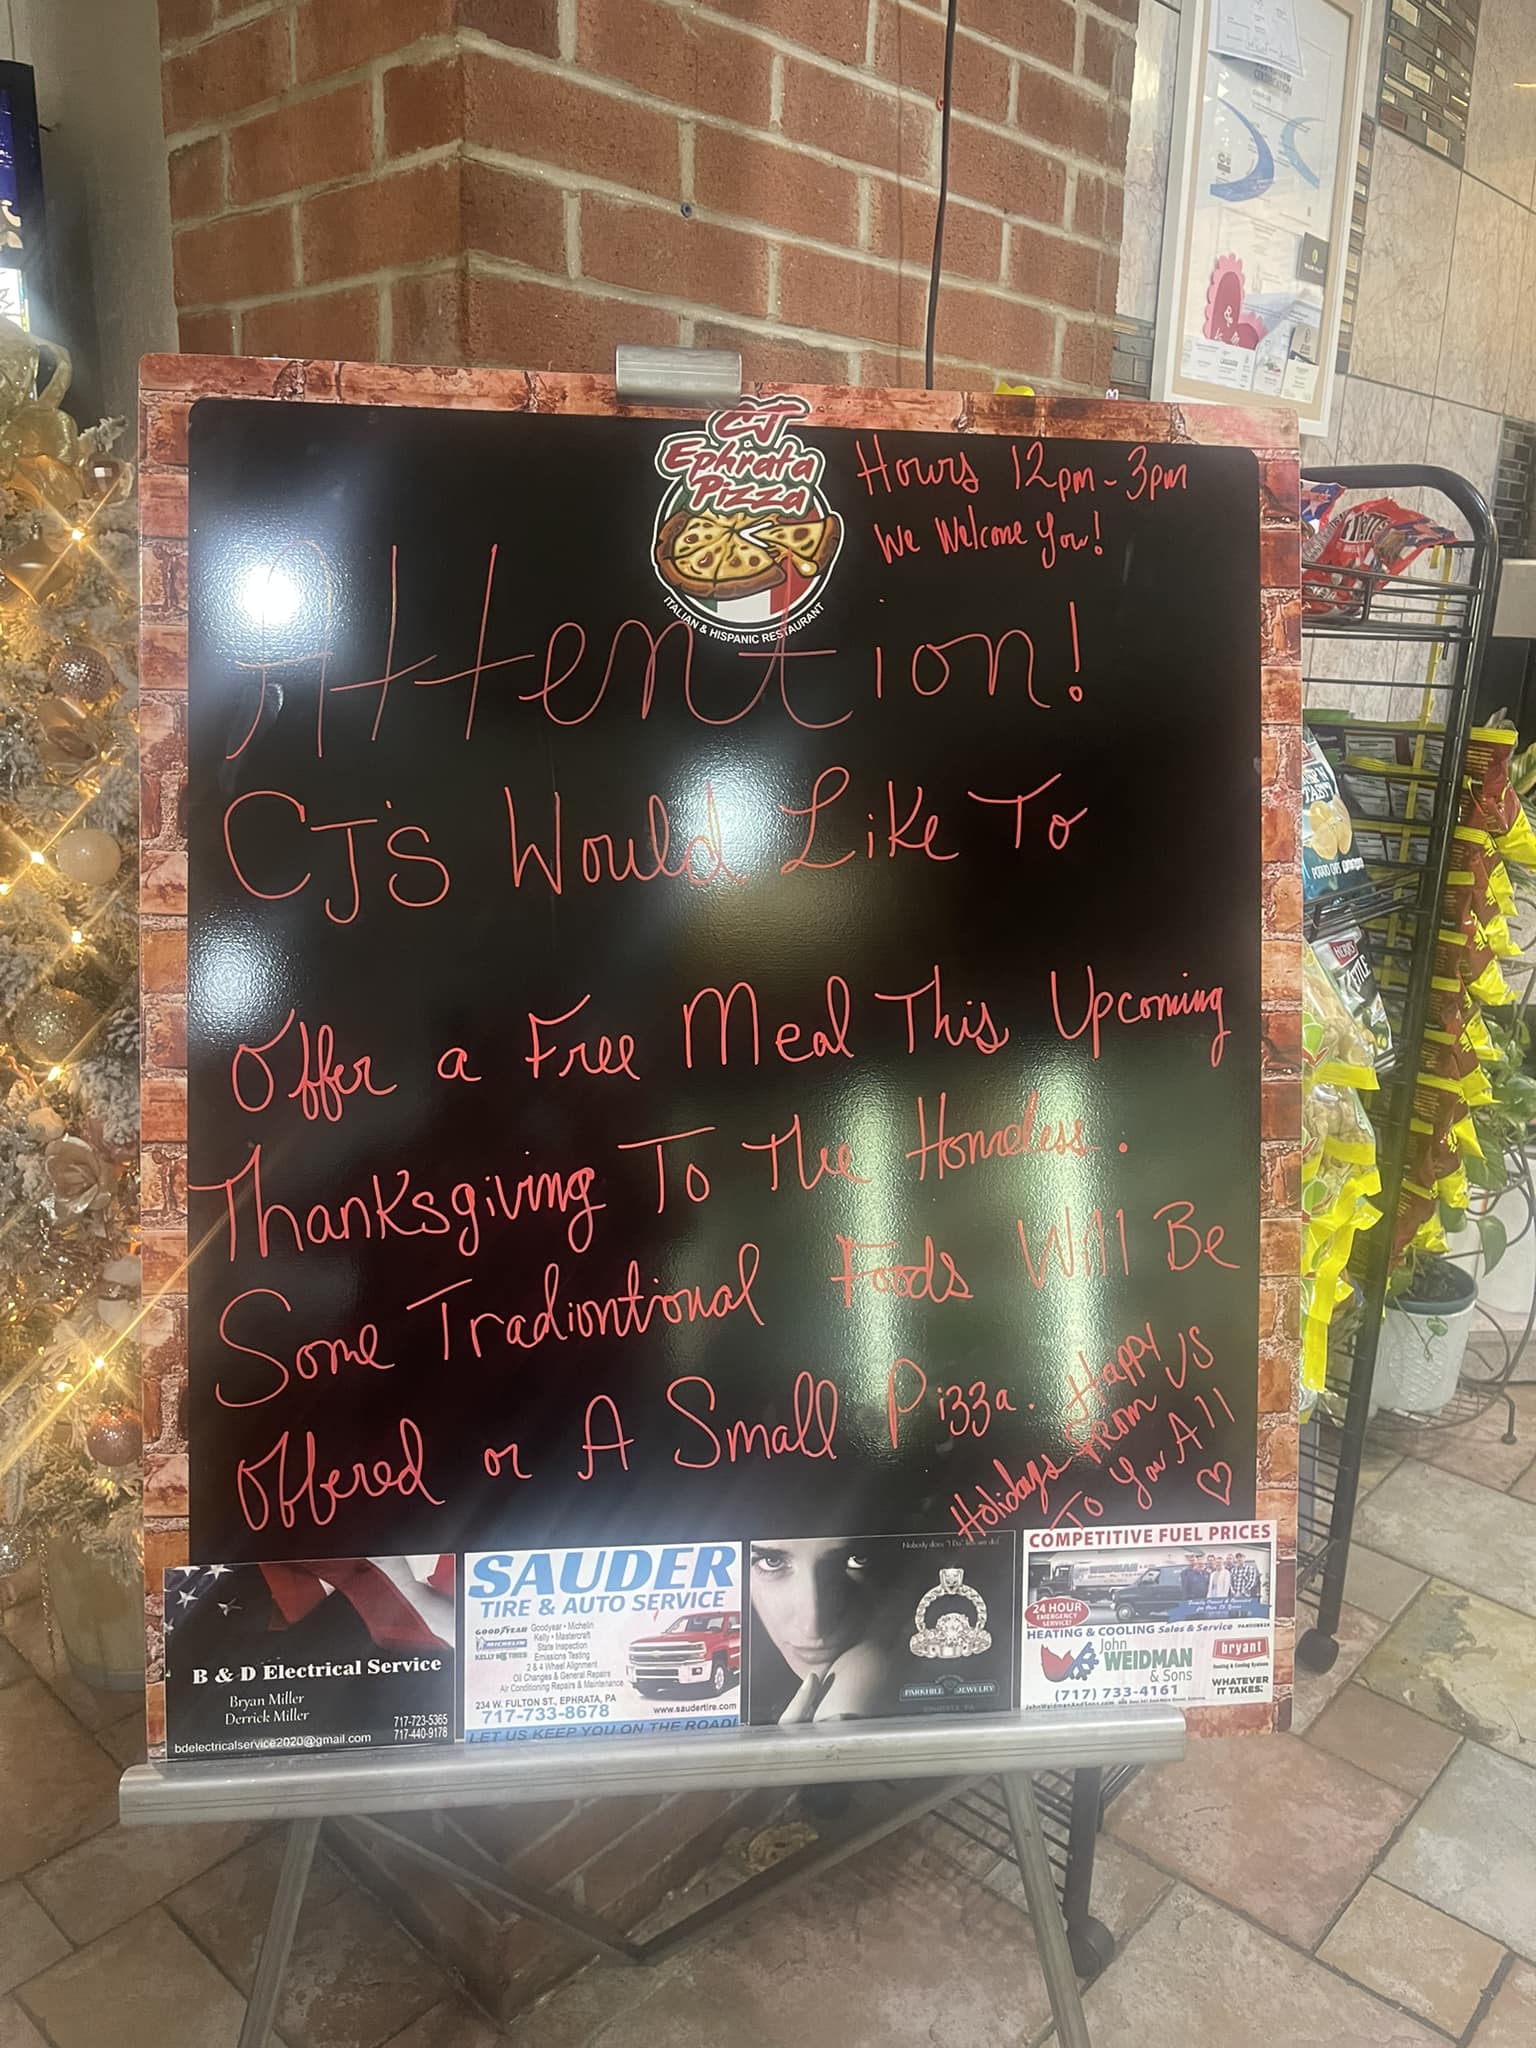 CJ
Ephrata
Pizza
ITALIAN & HISPANIC RESTAURANT
Hours 12pm - 3pm
We Welcome You!
Attention!
CJ'S Would Like To
Offer a Free Meal This Upcoming
Thanksgiving To The Homeless.
Some Tradiontional Foods Will Be
Offered or A Small Pizza.
Happy
Holidays From US
To You All
B & D Electrical Service
Bryan Miller
Derrick Miller
717-723-5365
717-440-9178
bdelectricalservice2020@gmail.com
SAUDER
TIRE & AUTO SERVICE
GOODYEAR
MICHELIN
KELLY TIRES
Goodyear • Michelin
Kelly • Mastercraft
State Inspection
Emissions Testing
2 & 4 Wheel Alignment
Oil Changes & General Repairs
Air Conditioning Repairs & Maintenance
234 W. FULTON ST., EPHRATA, PA
717-733-8678
www.saudertire.com
LET US KEEP YOU ON THE ROAD!
Nobody does "I Do" like we do!
PARKHILL JEWELRY
COMPETITIVE FUEL PRICES
24 HOUR
EMERGENCY
SERVICE!
HEATING & COOLING Sales & Service
John
WEIDMAN
& Sons
bryant
Heating & Cooling Systems
WHATEVER
IT TAKES.
(717) 733-4161
POTATO CHIPS
HERR'S
KETTLE